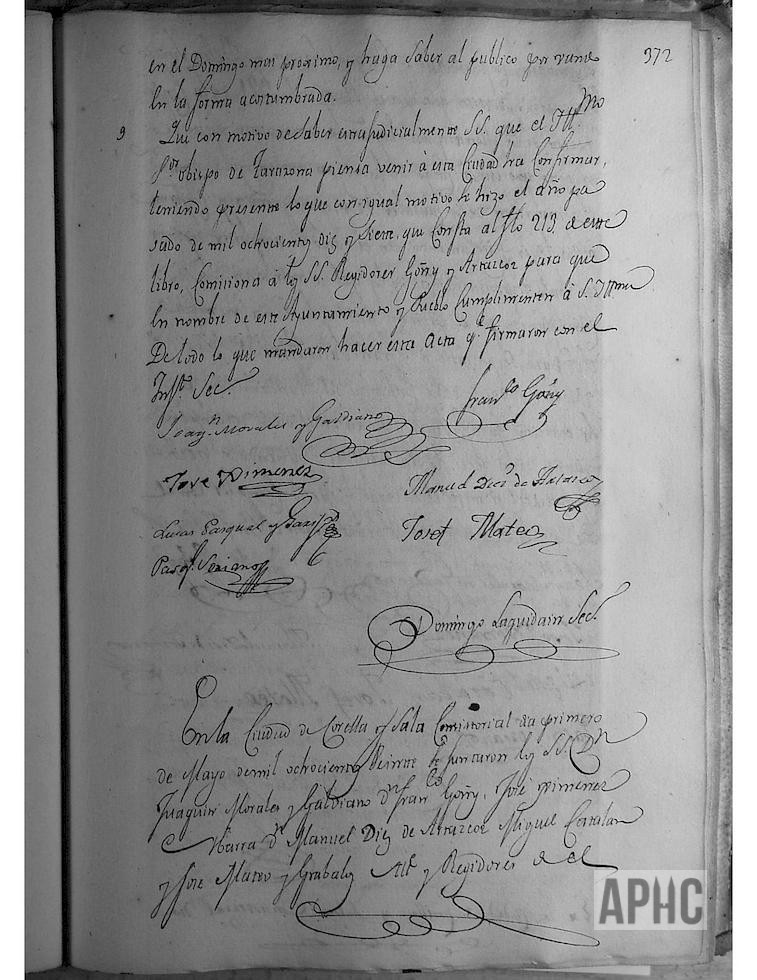 372
en el Domingo mas proximo, y haga saber al publico por vando
en la forma acostumbrada.
9 Que con motivo de saber extrajudicialmente SS. que el Ill.mo
S.or obispo de Tarazona piensa venir à esta Ciudad ha Confirmar,
teniendo presente lo que con igual motivo se hizo el año pa
sado de mil ochocientos diez y siete, que Consta al folio 213, de este
libro, Comisiona à los SS. Regidores Goñy y Artazcoz para que
en nombre de este Ayuntamiento y Pueblo Cumplimenten à S. Ill.ma
De todo lo que mandaron hacer esta acta q.e firmaron con el
Inf.to Sec.o
Joaq.n Morales y Galdiano
Fran.co Goñy
Jose Ximenez
Manuel Diez de
Lucas Pasqual y
Josef Mateo
Pasq.l Seriano
Domingo Laquidain Sec.o
En la Ciudad de Corella y Sala Consistorial dia primero
de Mayo de mil ochocientos Veinte se juntaron los SS. D.n
Joaquin Morales y Galdiano d.n Fran.co Goñy, José Ximenez
Ybarra d.n Manuel Diez de Artazcoz Miguel Catalan
y Jose Mateo y Grabalos Alc.e y Regidores de el
APHC